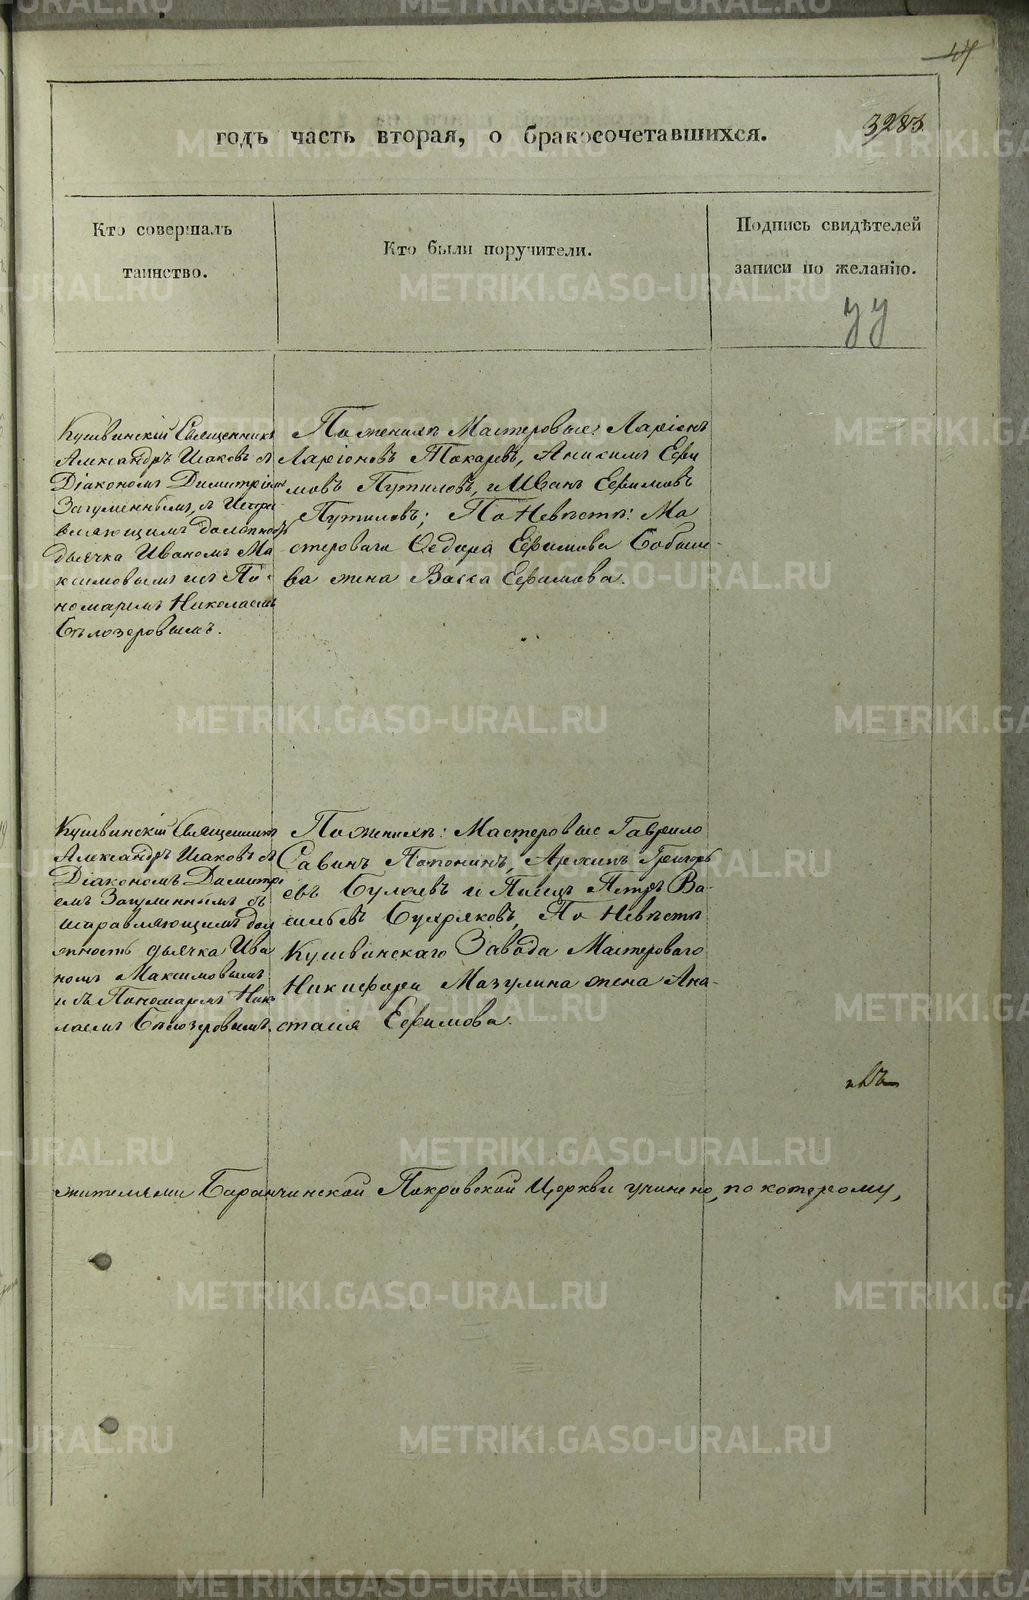 годъ часть вторая, о бракосочетавшихся.
3283
Кто совершалъ
таинство.
Кто были поручители.
Подпись свидѣтелей
записи по желанію.
Кушвинскій Священникъ
Александръ Исаковъ съ
Діакономъ Димитріемъ
Загуменнымъ, съ Исправ
вляющимъ должность
дьячка Иваномъ Ма
ксимовымъ и съ По-
номаремъ Николаемъ
Бѣлозеровымъ.
По женихѣ Мастеровые: Ларіонъ
Ларіоновъ Токаревъ, Анисимъ Ефи
мовъ Путиловъ, и Иванъ Ефимовъ
Путиловъ; По Невѣстѣ: Ма
стероваго Ѳедора Ефимова
ва жена Васса Ефимова.
Кушвинскій Священникъ
Александръ Исаковъ съ
Діакономъ Димитрі
емъ Загуменнымъ съ
исправляющимъ дол
жность дьячка Ива
номъ Максимовымъ
и съ Пономаремъ Нико
лаемъ Бѣлозеровымъ.
По женихѣ: Мастеровые Гаврило
Савинъ Попонинъ, Архипъ Григорь
евъ Булаевъ и Писецъ Петръ Ва-
сильевъ Бухряковъ, По Невѣстѣ
Кушвинскаго Завода Мастероваго
Никифора Мазулина жена Ана-
стасія Ефимова.
жителями Баранчинской Покровской Церкви учинено, по которому,
METRIKI.GASO-URAL.RU